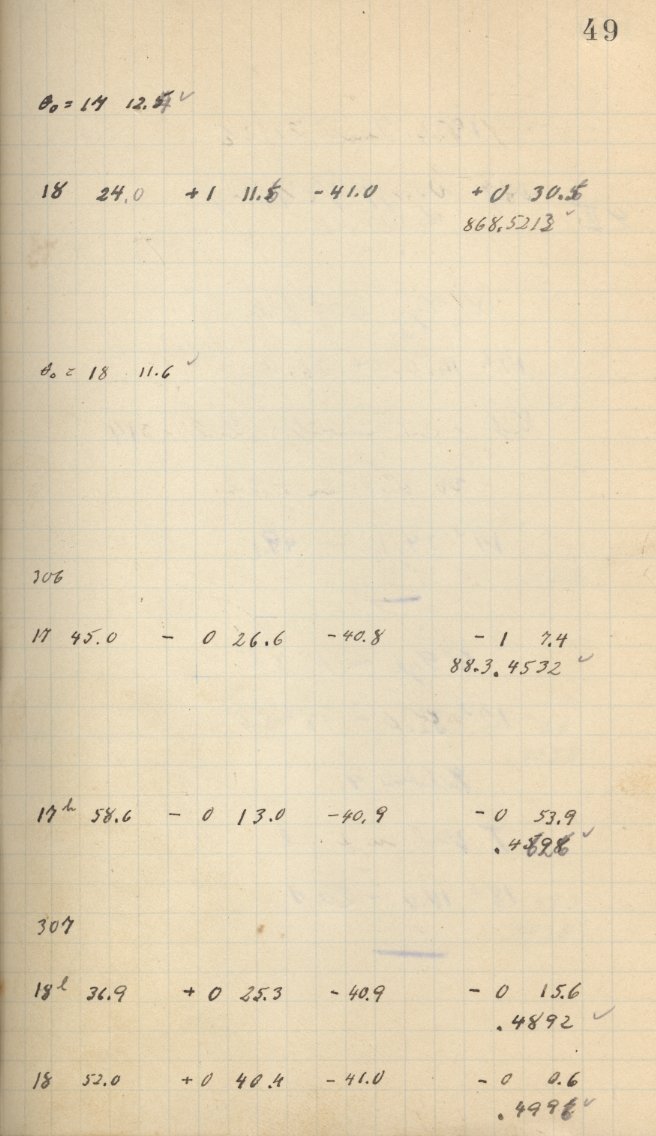 49
θ₀ = 17 12.4 ✓
18 24.0 +1 11.5 -41.0 +0 30.5
868.5213 ✓
θ₀ = 18 11.6 ✓
306
17 45.0 - 0 26.6 -40.8 - 1 7.4
883.4532 ✓
17ʰ 58.6 - 0 13.0 -40.9 - 0 53.9
✓
307
18 36.9 + 0 25.3 -40.9 - 0 15.6
.4892 ✓
18 52.0 +0 40.4 -41.0 - 0 0.6
✓